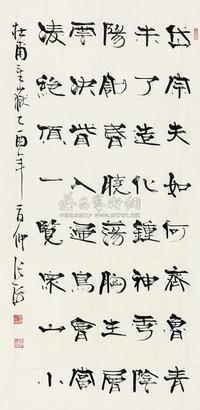 岱宗夫如何齊魯青
未了造化鍾神秀陰
陽割昏曉蕩胸生層
雲決眥入歸鳥會當
凌絕頂一覽眾山小
杜甫望嶽乙酉年